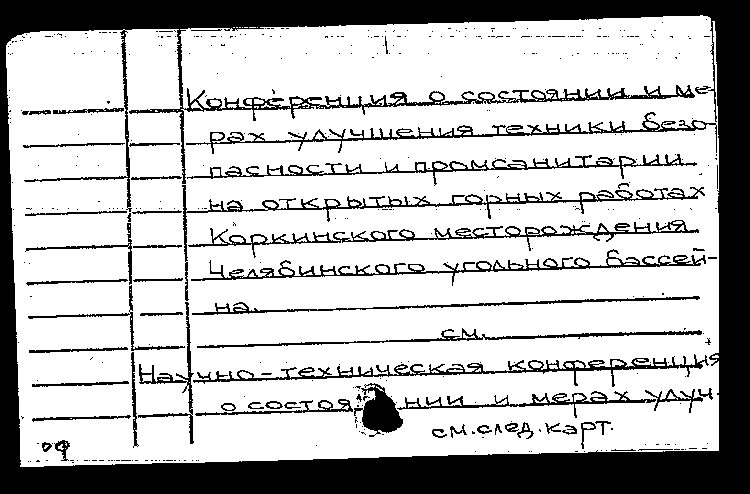 Конференция о состоянии и ме-
рах улучшения техники безо-
пасности и промсанитарии
на открытых горных работах
Коркинского месторождения
Челябинского угольного бассей-
на.
см.
Научно-техническая конференция
о состоянии и мерах улуч-
см. след. карт.